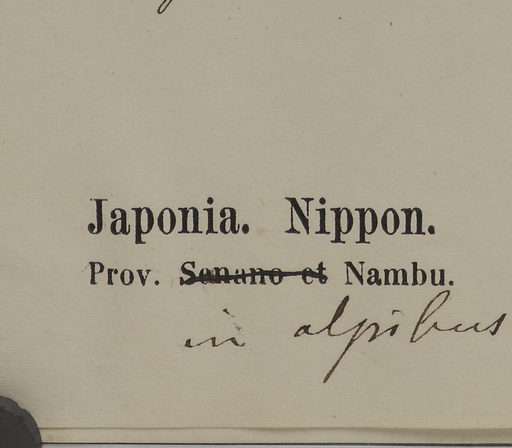 Japonia. Nippon.
Prov. Senano et Nambu.
in alpibus